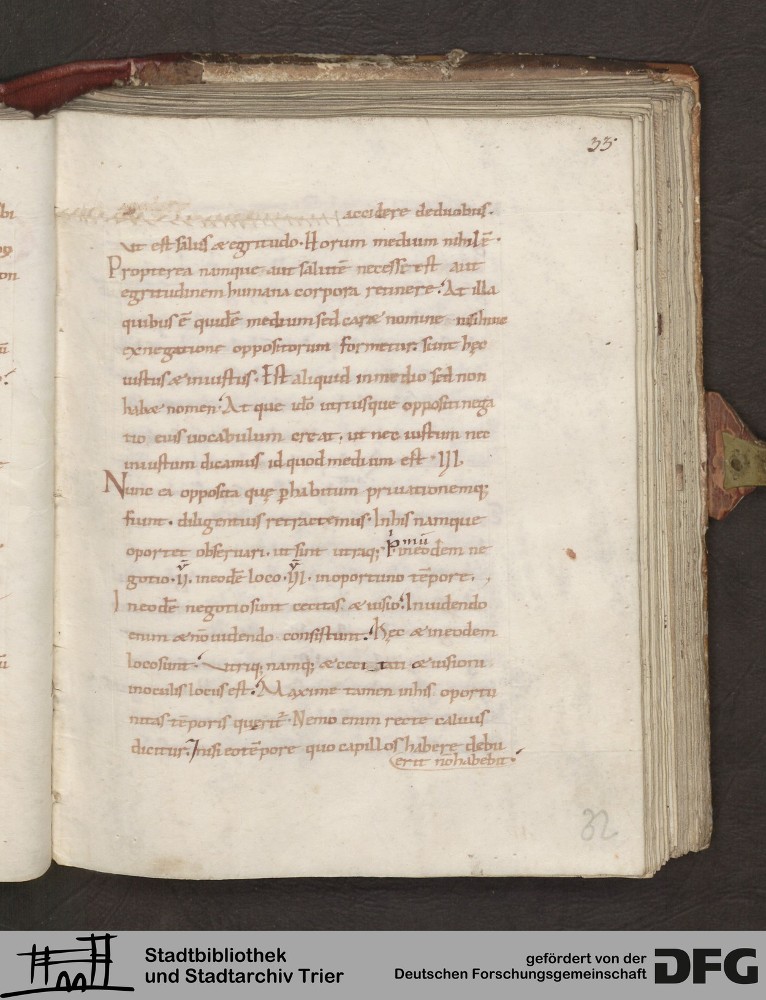 33
accidere deduobus.
ut est salus & egritudo. Horum medium nihil ē.
Propterea namque aut salutē necesse est aut
egritudinem humana corpora retinere. At illa
quibus ē quidē medium sed car& nomine
ex negatione oppositorum formetur. sunt hęc
iustus & iniustus. Est aliquid in medio sed non
hab& nomen. At que utriusque oppositi nega
tio eius uocabulum creat. ut nec iustum nec
iniustum dicamus id quod medium est. III.
Nunc ea opposita quę phabitum priuationemq;
fiunt. diligentius retractemus. In his namque
oportet obseruari. ut sint utraq; in eodem ne
gotio. II. in eodē loco. III. in oportuno tēpore.
In eodē negotio sunt cecitas & uisio. In uidendo
enim & nō uidendo consistunt. Hęc & in eodem
loco sunt. Utriq; namq; & ceci tati & uisioni
in oculis locus est. Maxime tamen in his oportu
nitas tēporis querit. Nemo enim recte caluus
dicitur. nisi eo tēpore quo capillos habere debu
erit nō habebit.
32
Stadtbibliothek
und Stadtarchiv Trier
gefördert von der
Deutschen Forschungsgemeinschaft
DFG